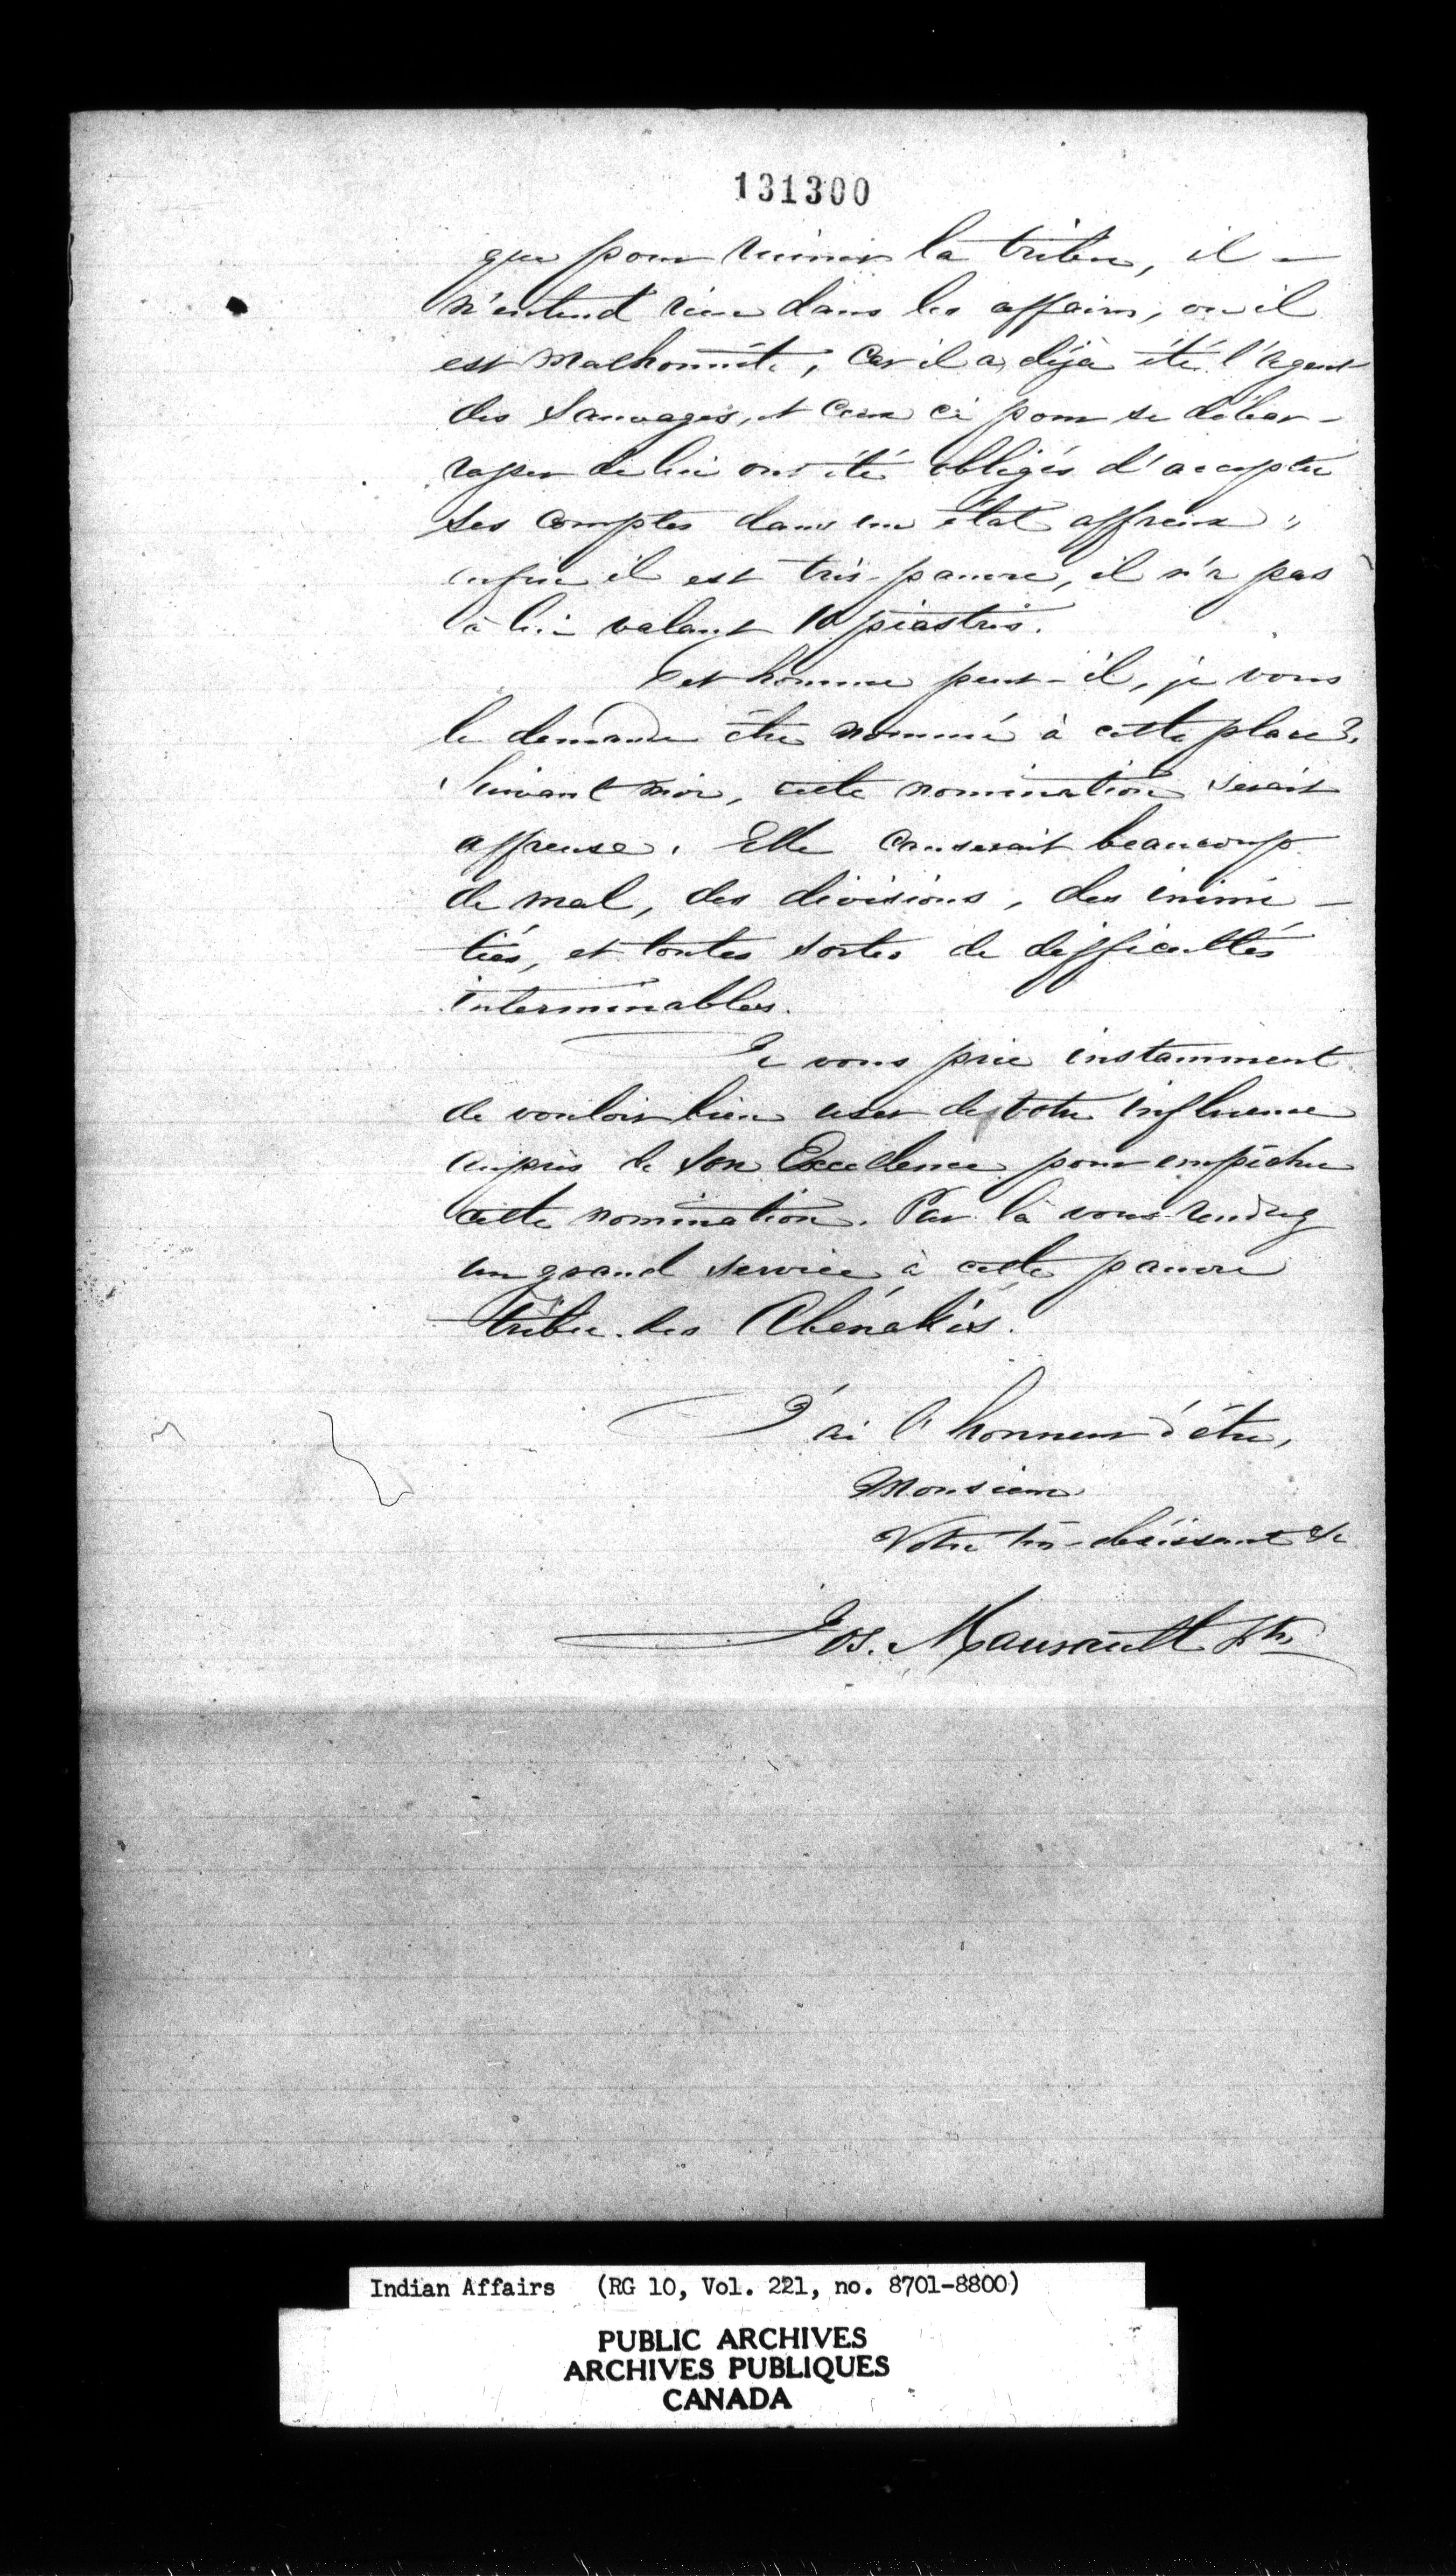 131300
que pour ruiner la tribu, il
n'entend rien dans les affaires, ou il
est malhonnête, car il a déjà été l'agent
des Sauvages, et ceux ci pour se débar-
rasser de lui ont été obligés d'accepter
ses comptes dans un état affreux;
enfin il est très-pauvre, il n'a pas
à lui valant 10 piastres.
Cet homme peut-il, je vous
le demande être nommé à cette place?
Suivant moi, cette nomination serait
affreuse. Elle causerait beaucoup
de mal, des divisions, des inimi-
tiés, et toutes sortes de difficultés
interminables.
Je vous prie instamment
de vouloir bien user de votre influence
auprès de Son Excellence pour empêcher
cette nomination. Par là vous rendrez
un grand service à cette pauvre
tribu des Abénakis.
J'ai l'honneur d'être,
Monsieur
Votre très-obéissant &c
Jos. Maurault Ptre
Indian Affairs (RG 10, Vol. 221, no. 8701-8800)
PUBLIC ARCHIVES
ARCHIVES PUBLIQUES
CANADA